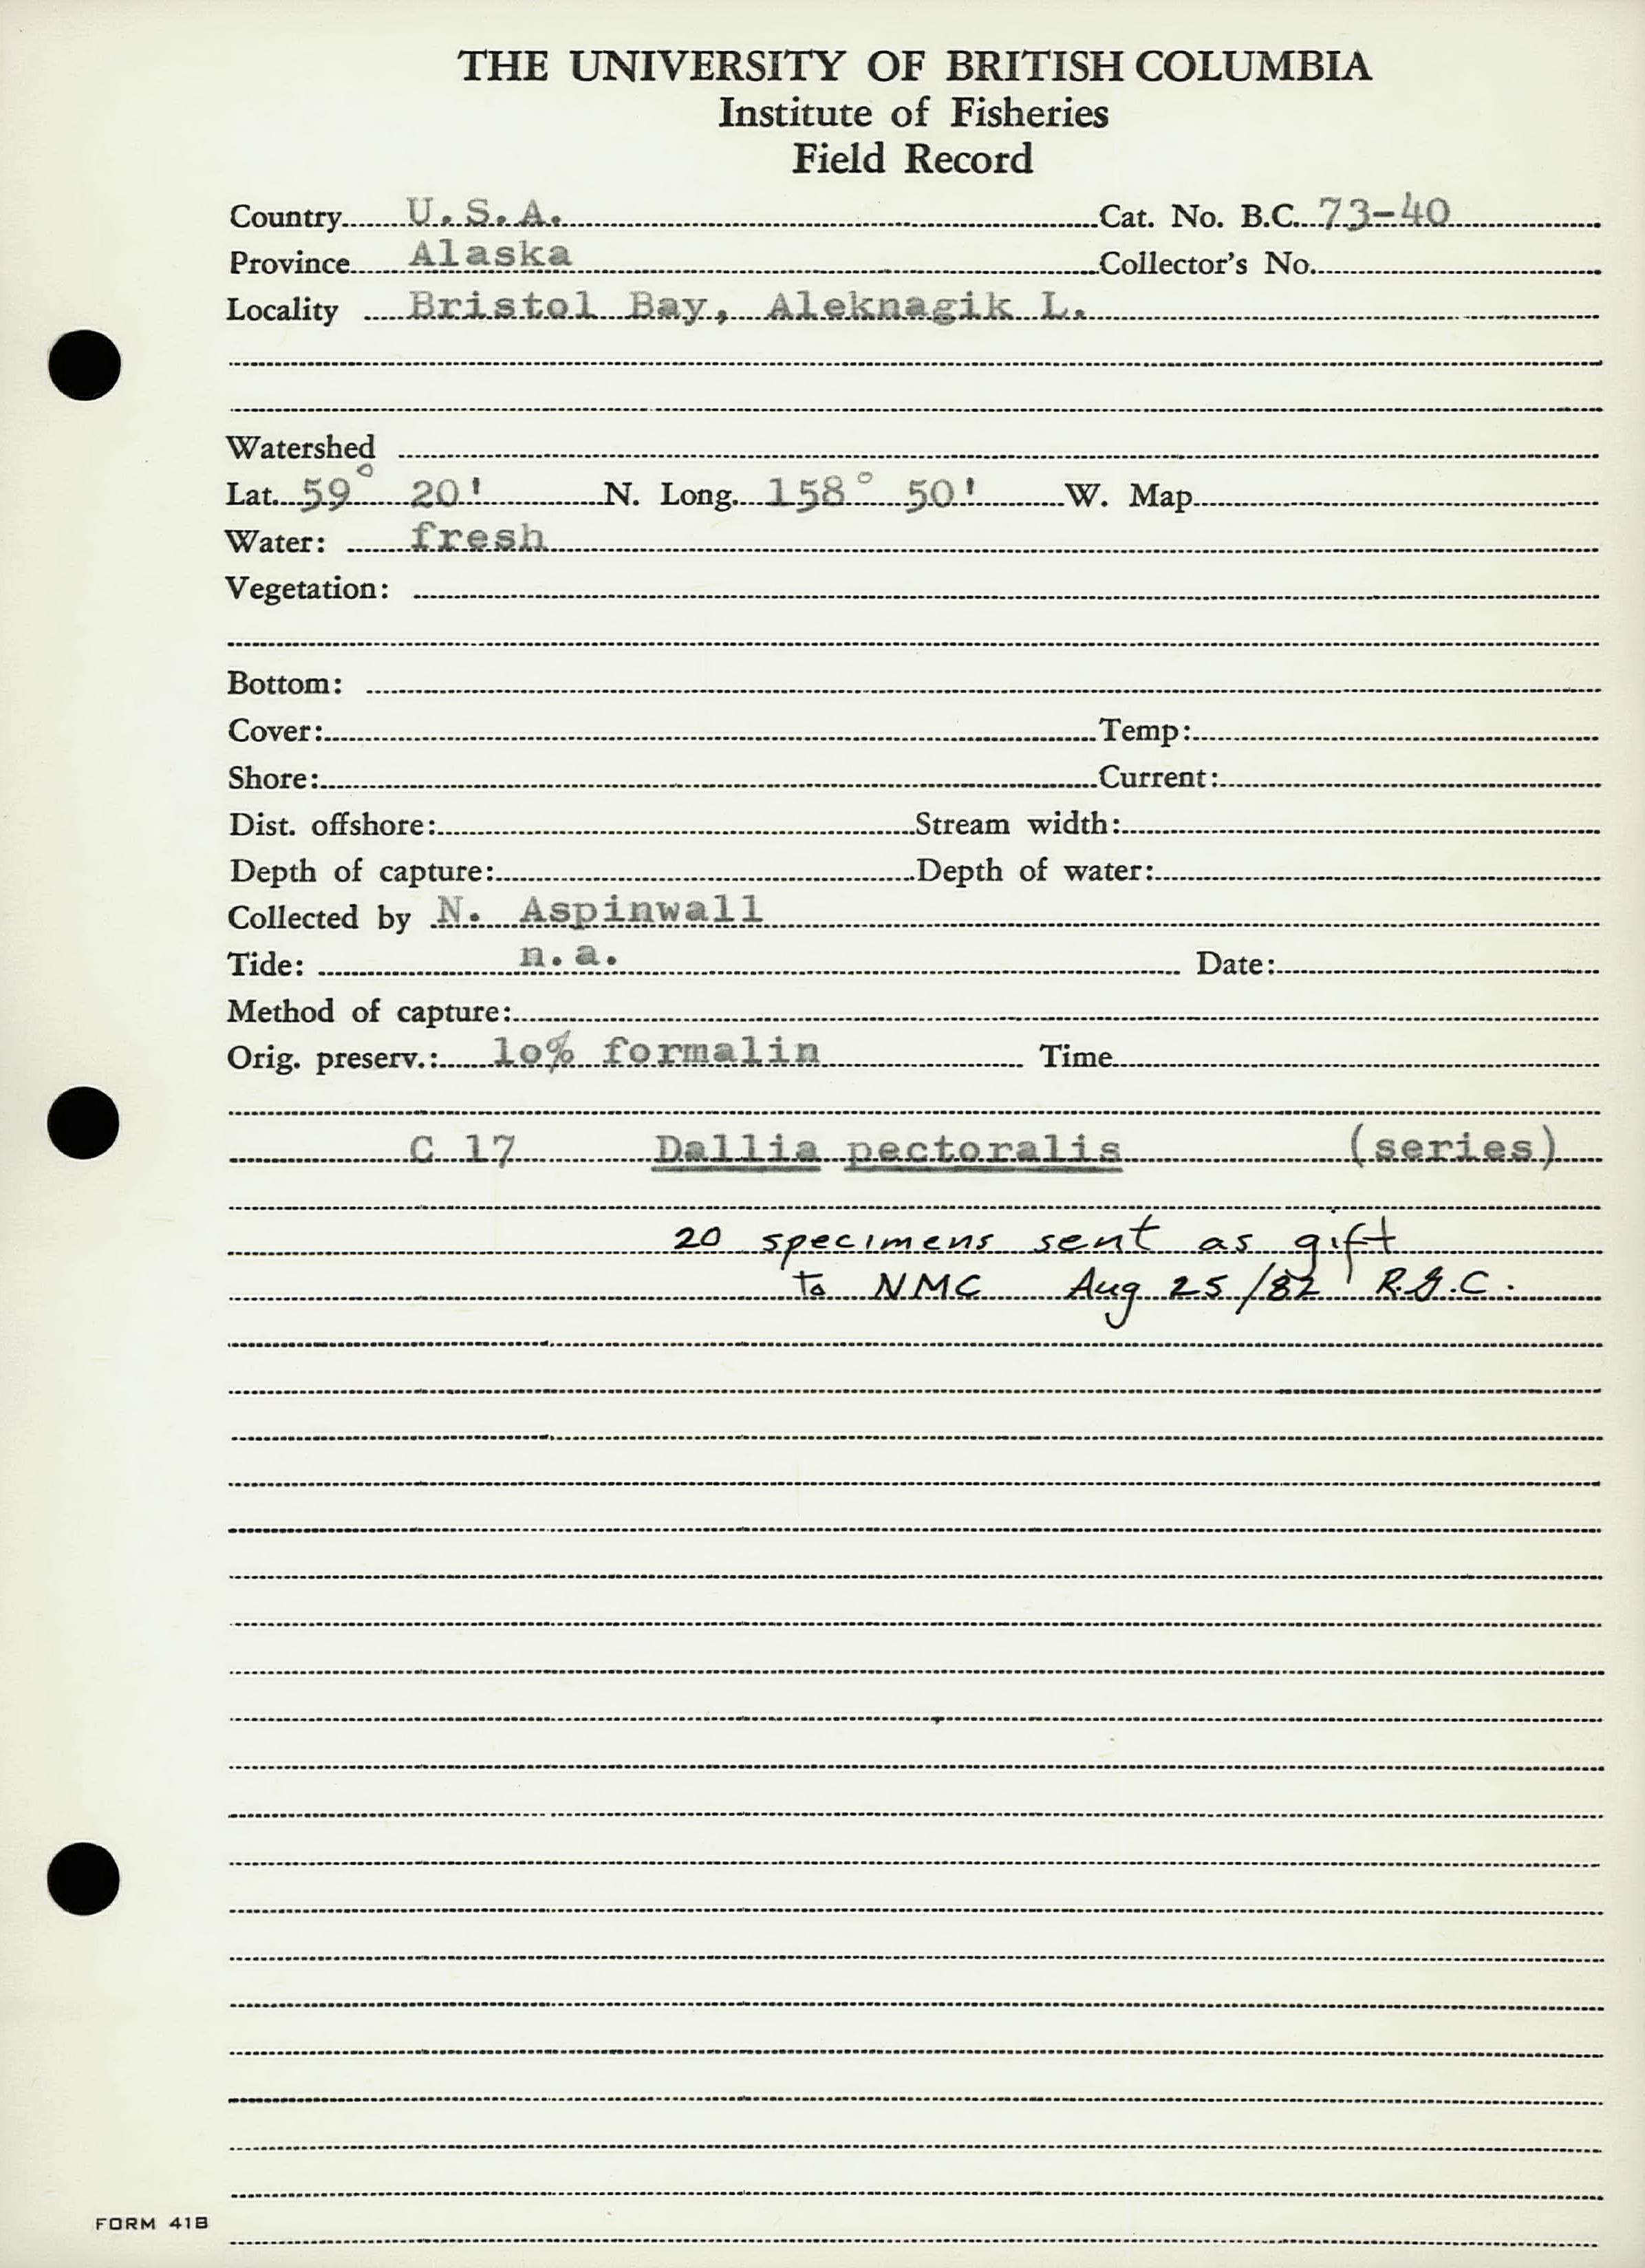 THE UNIVERSITY OF BRITISH COLUMBIA
Institute of Fisheries
Field Record
Country U.S.A. Cat. No. B.C. 73-40
Province Alaska Collector's No.
Locality Bristol Bay, Aleknagik L.
Watershed
Lat. 59° 20' N. Long. 158° 50' W. Map
Water: fresh
Vegetation:
Bottom:
Cover: Temp:
Shore: Current:
Dist. offshore: Stream width:
Depth of capture: Depth of water:
Collected by N. Aspinwall
Tide: n.a. Date:
Method of capture:
Orig. preserv.: lo% formalin Time
C 17 Dallia pectoralis (series)
20 specimens sent as gift
to NMC Aug 25/82 R.G.C.
FORM 41B